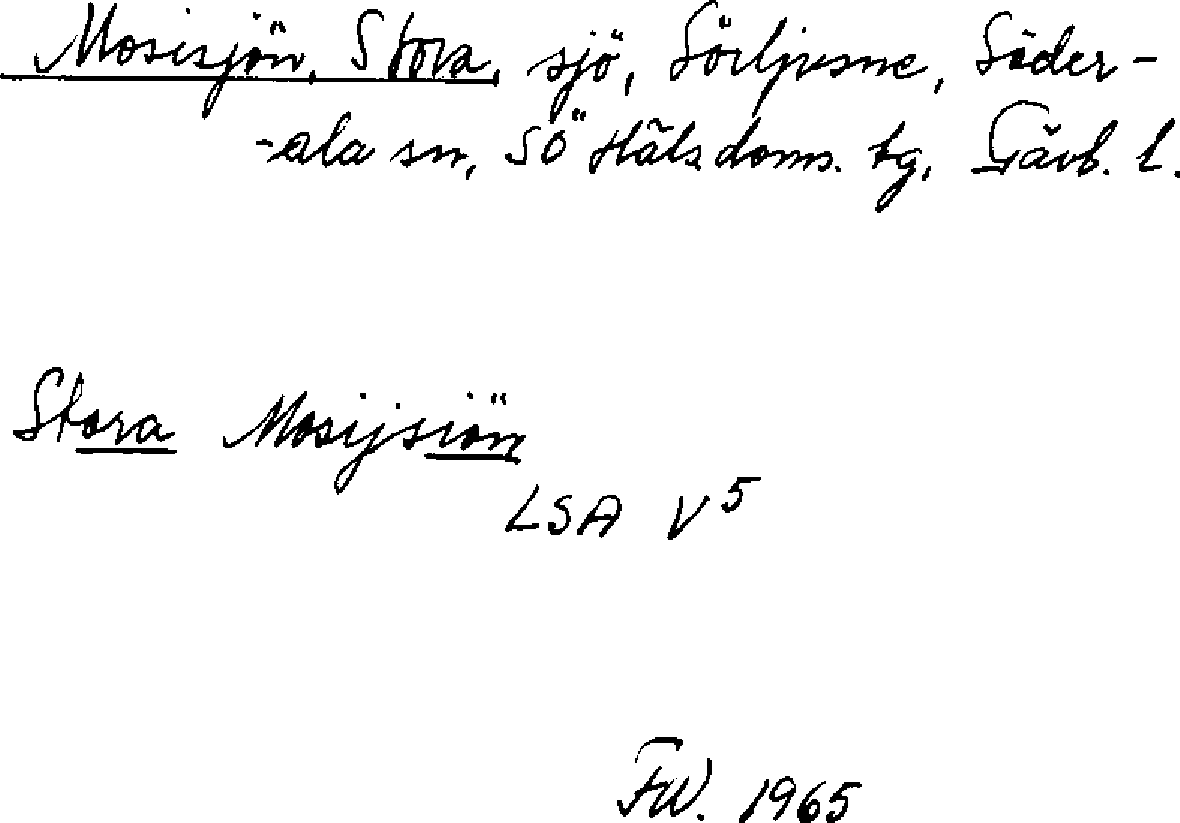 Mosisjön, Stora, sjö, Sörljusne, Söder-
-ala sn, SÖ Häls.doms. tg, Gävb. l.
Stora Mosijsiön
LSA V 5
FW. 1965